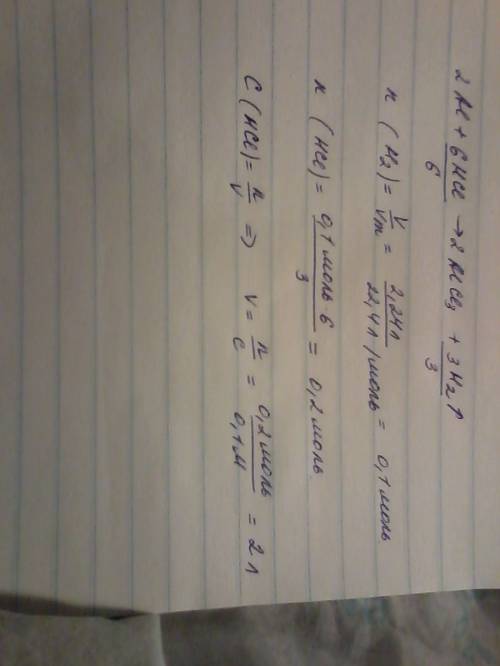 2Al + 6HCl → 2AlCl₃ + 3H₂↑
6 3
n (H₂) = V/Vm = 2,24л / 22,4л/моль = 0,1 моль
n (HCl) = 0,1 моль 6 / 3 = 0,2 моль
C (HCl) = n/V => V = n/C = 0,2 моль / 0,1 М = 2 л